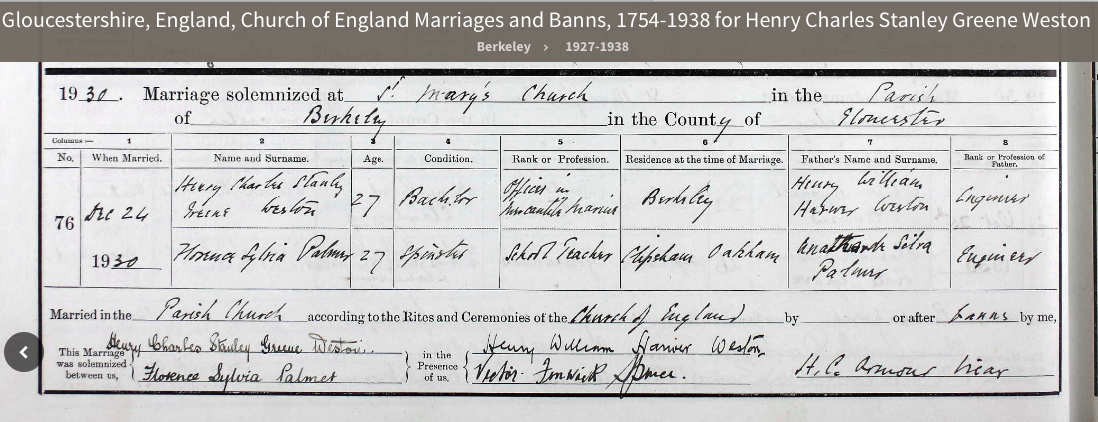 Gloucestershire, England, Church of England Marriages and Banns, 1754-1938 for Henry Charles Stanley Greene Weston
Berkeley › 1927-1938
1930. Marriage solemnized at St. Mary's Church in the Parish
of Berkeley in the County of Gloucester
Columns:— 1 2 3 4 5 6 7 8
No. When Married. Name and Surname. Age. Condition. Rank or Profession. Residence at the time of Marriage. Father's Name and Surname. Rank or Profession of Father.
76 Dec 24 1930
Henry Charles Stanley Greene Weston 27 Bachelor Officer in Mercantile Marine Berkeley Henry William Weston Engineer
Florence Sylvia Palmer 27 Spinster School Teacher Clipsham Oakham Silva Palmer Engineer
Married in the Parish Church according to the Rites and Ceremonies of the Church of England by or after banns by me,
This Marriage was solemnized between us,
Henry Charles Stanley Greene Weston.
Florence Sylvia Palmer
in the Presence of us,
Henry William Weston
Victor Fenwick
H.C. Armour Vicar